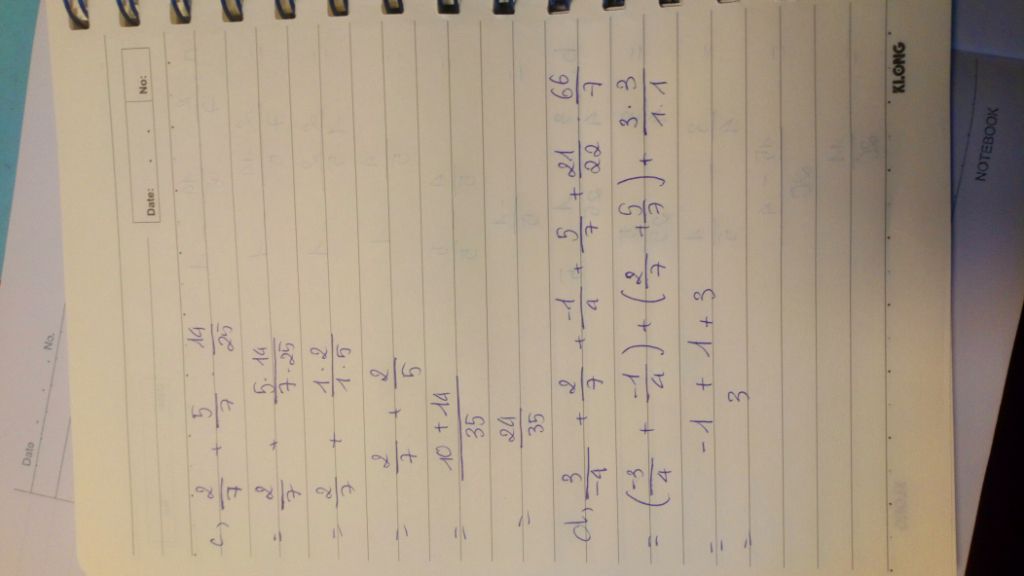 Date . . No.
Date: . . No:
c, 2/7 + 5/7 . 14/25
= 2/7 + (5 . 14)/(7 . 25)
= 2/7 + (1 . 2)/(1 . 5)
= 2/7 + 2/5
= (10 + 14)/35
= 24/35
d, 3/-4 + 2/7 + -1/4 + 5/7 + 21/22 66/7
= (-3/4 + -1/4) + (2/7 + 5/7) + (3 . 3)/(1 . 1)
= -1 + 1 + 3
= 3
KLONG
NOTEBOOK